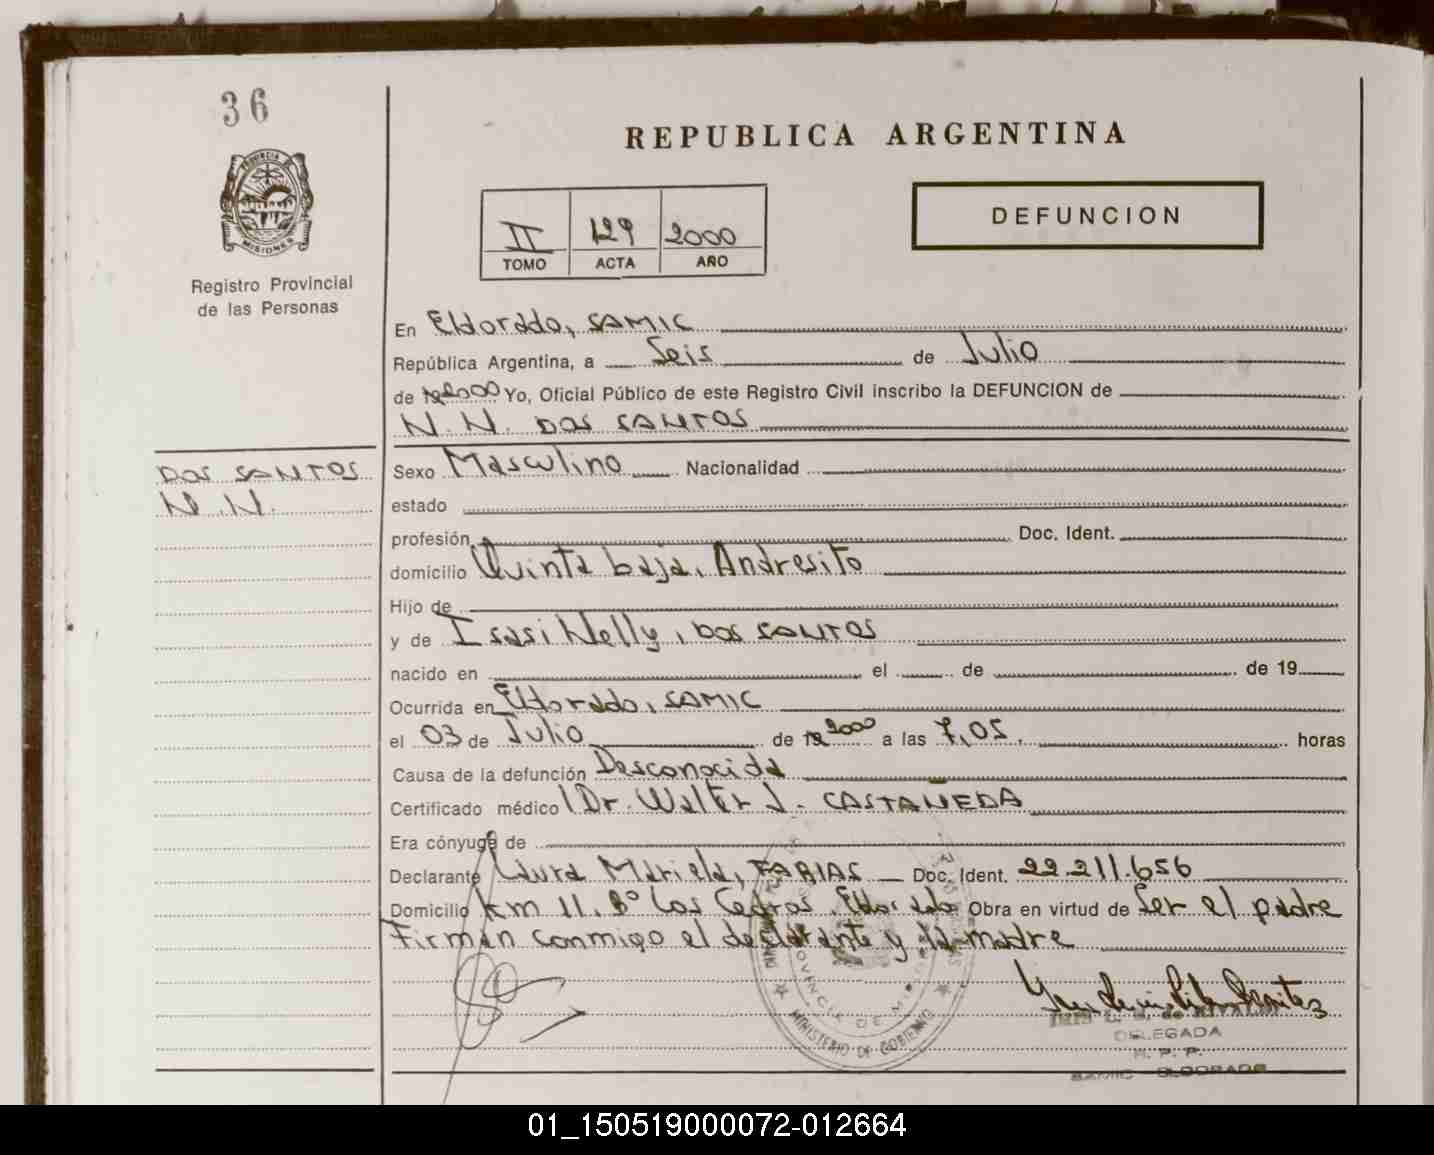 36
REPUBLICA ARGENTINA
PROVINCIA DE
MISIONES
Registro Provincial
de las Personas
II 129 2000
TOMO ACTA AÑO
DEFUNCION
En Eldorado, SAMIC
República Argentina, a Seis de Julio
de 19 2000 Yo, Oficial Público de este Registro Civil inscribo la DEFUNCION de
N.N. DOS SANTOS
DOS SANTOS
N.N.
Sexo Masculino Nacionalidad
estado
profesión Doc. Ident.
domicilio Quinta baja, Andresito
Hijo de
y de Isasi Nelly, DOS SANTOS
nacido en el de de 19
Ocurrida en Eldorado, SAMIC
el 03 de Julio de 19 2000 a las 7,05. horas
Causa de la defunción Desconocida
Certificado médico Dr. Walter J. CASTAÑEDA
Era cónyuge de
Declarante Laura Mariela, FARIAS Doc. Ident. 22.211.656
Domicilio Km 11. Bº Los Cedros. Eldorado Obra en virtud de Ser el padre
Firman conmigo el declarante y la madre
PROVINCIA DE MISIONES
MINISTERIO DE GOBIERNO
DELEGADA
R. P. P.
SAMIC - ELDORADO
01_150519000072-012664